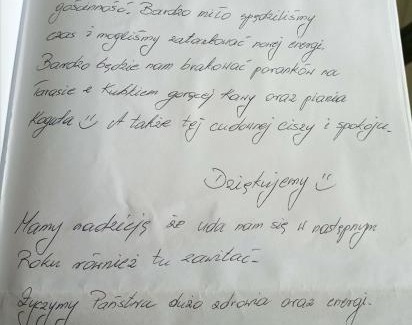 gościnność. Bardzo miło spędziliśmy
czas i mogliśmy zaczerpnąć nowej energii.
Bardzo będzie nam brakować poranków na
Tarasie z Kubkiem gorącej Kawy oraz piania
Koguta A także tej cudownej ciszy i spokoju.
Dziękujemy
Mamy nadzieję że uda nam się w następnym
Roku również tu zawitać.
Życzymy Państwu dużo zdrowia oraz energii.